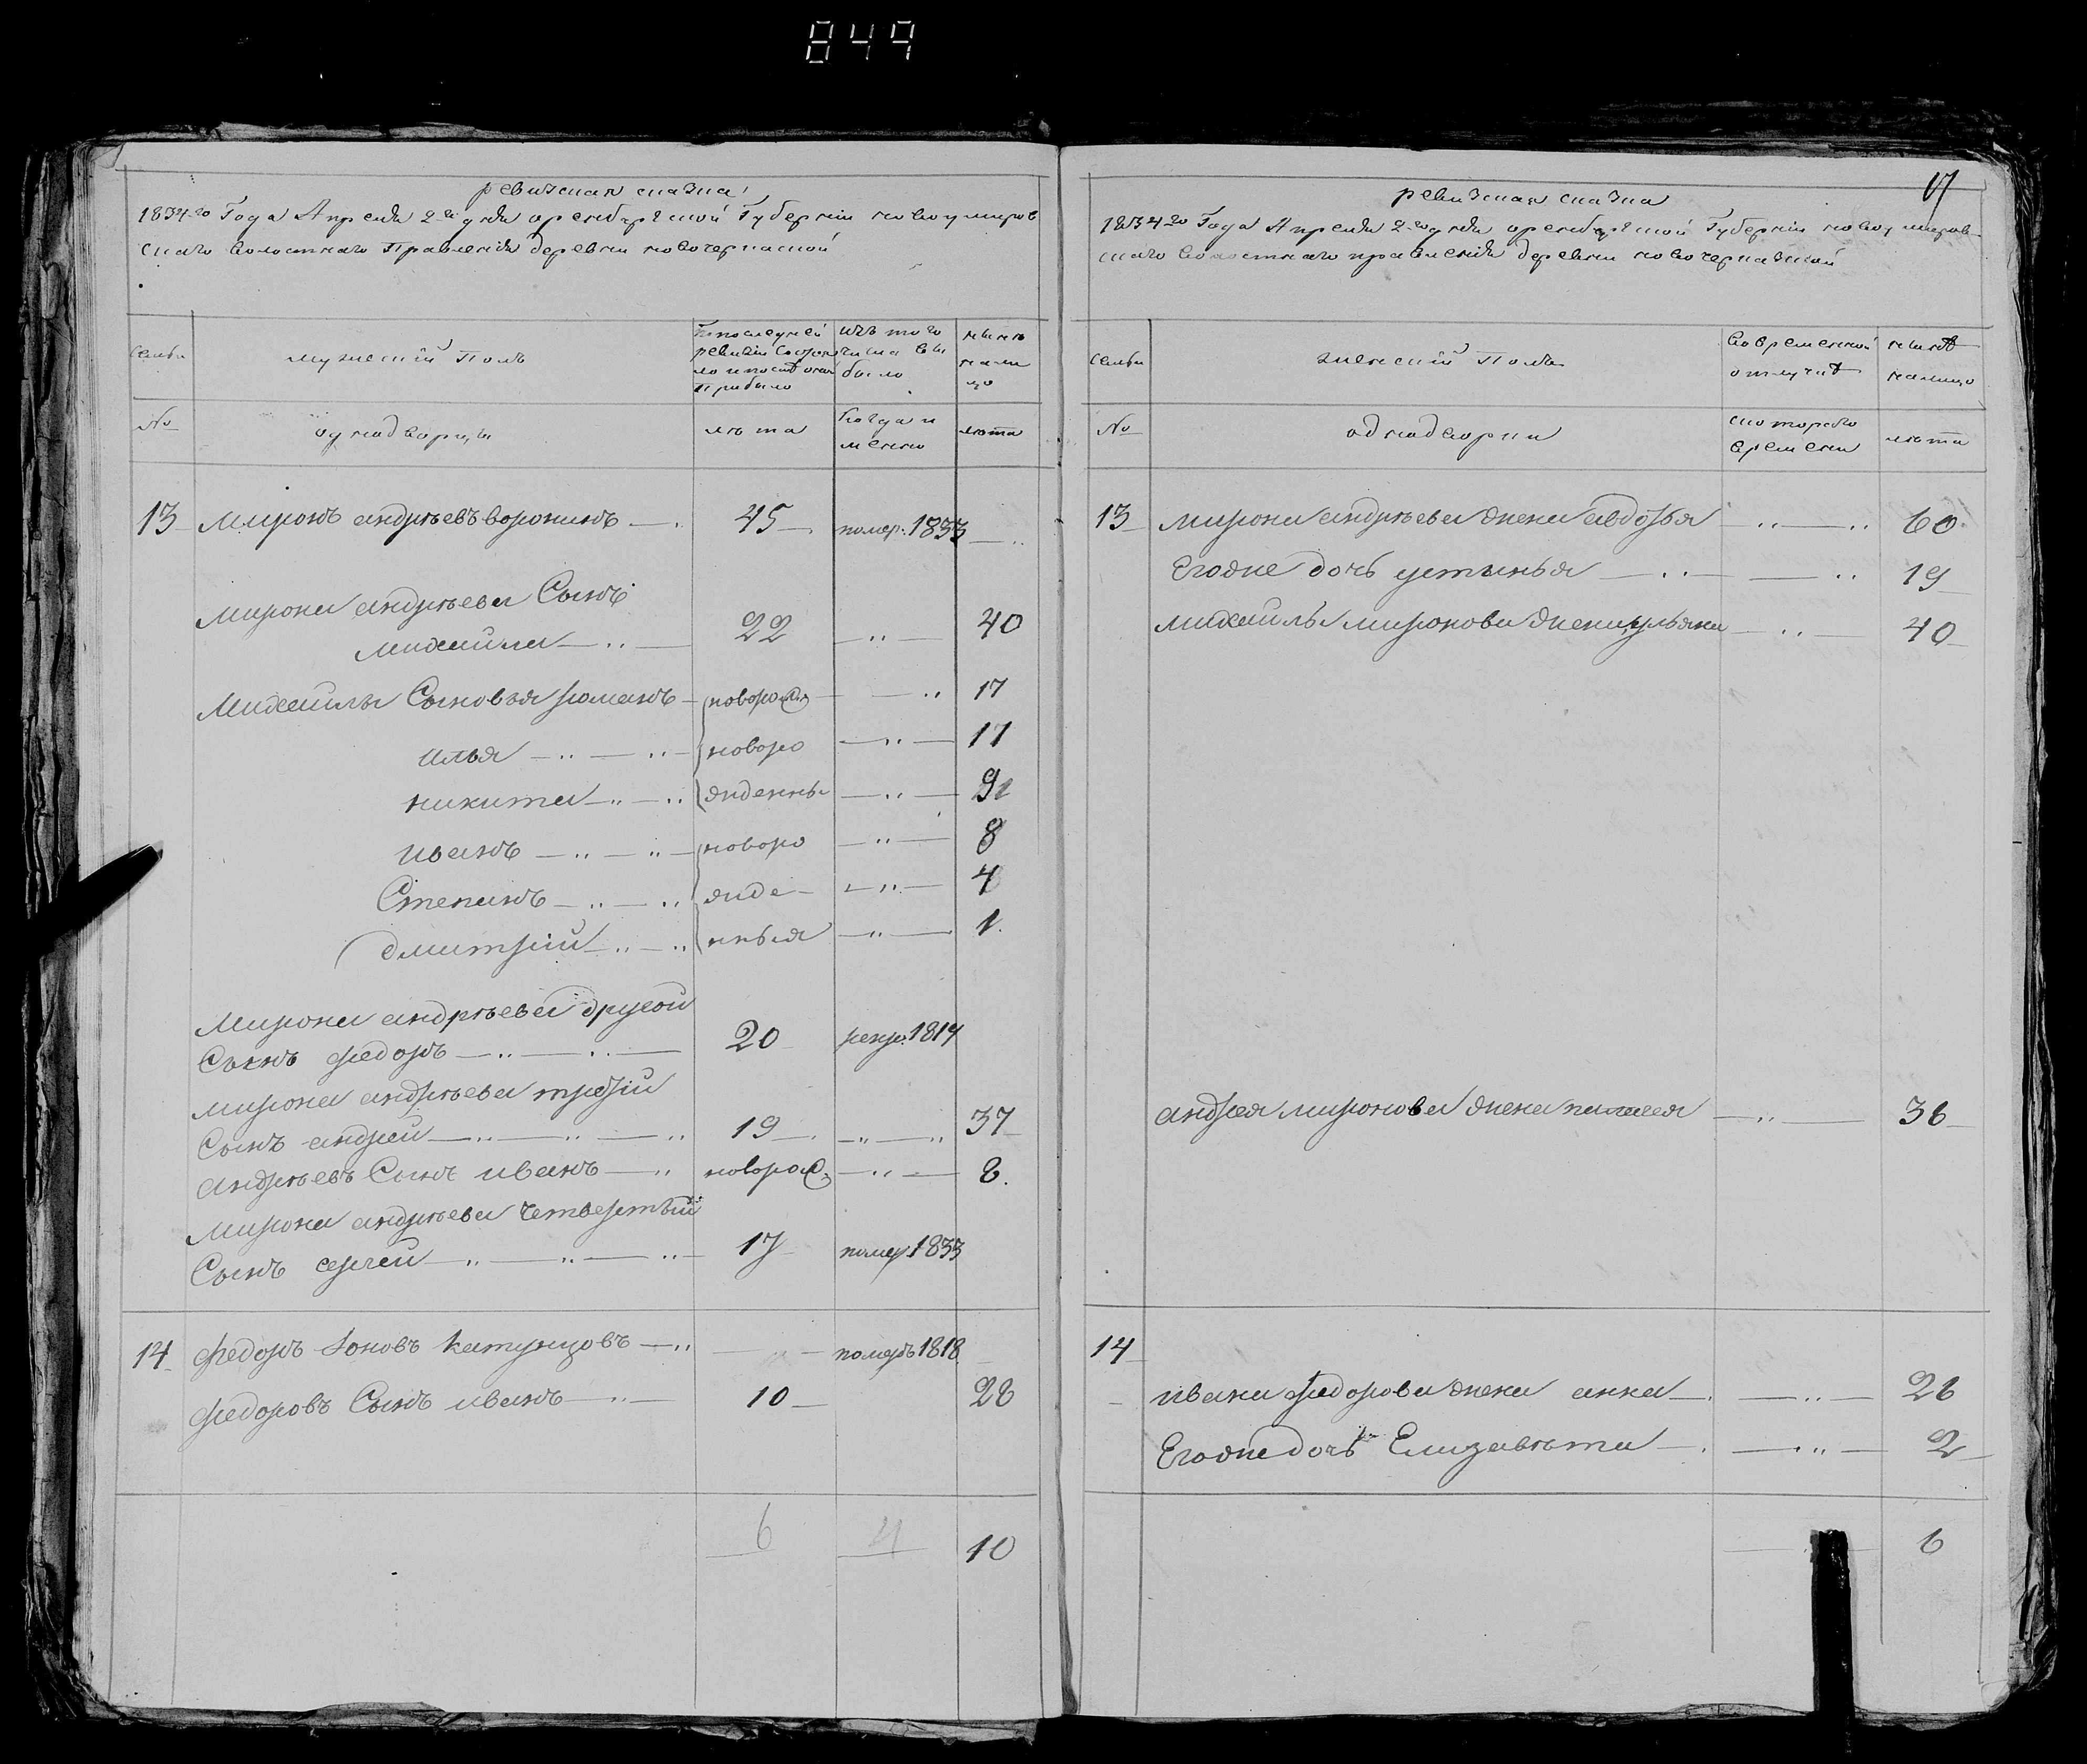 849
ревизская сказка
1834го Года Апреля 2го дня оренбургской Губернии новоумиров
скаго волостнаго Правления деревни новочеркаской
Семьи
мужеский Полъ
По последней
ревизии состоя
ло и после оной
Прибыло
изъ того
числа вы
было
ныне
нали
цо
№
однадворцы
лета
Когда и
менно
лета
13 Миронъ андреевъ воронинъ 45 помер. 1833
Мирона андреева Сынъ
михаила 22 40
Михаилы Сыновья романъ новорож 17
илья новоро 17
никита жденны 9
иванъ новоро 8
Степанъ жде 4
дмитрий нныя 1
Мирона андреева другой
Сынъ федоръ 20 рекр. 1814
мирона андреева третий
Сынъ андрей 19 37
андреевъ Сынъ иванъ новорож 8
Мирона андреева четвертый
Сынъ сергей 17 помер 1833
14 федоръ Ионовъ померъ 1818
федоровъ Сынъ иванъ 10 28
6 4 10
17
ревизская сказка
1834го Года Апреля 2го дня оренбургской Губернии новоумиров
скаго волостнаго правления деревни новочерказской
Семьи
женский Полъ
во временной
отлучке
ныне
налицо
№
однадворки
с котораго
времени
лета
13 мирона андреева жена авдотья 60
Егоже дочь устинья 19
михаилы миронова жена ульяна 40
андрея миронова жена пелагея 36
14
ивана федорова жена анна 26
Егоже дочь Елизавета 2
6